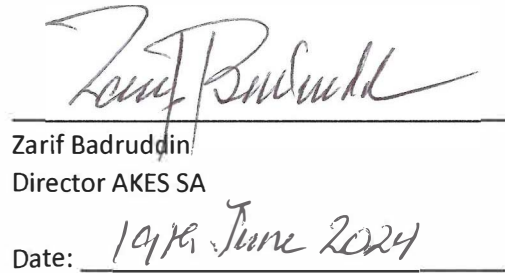 Zarif Badruddin
Zarif Badruddin
Director AKES SA
Date: 19th June 2024